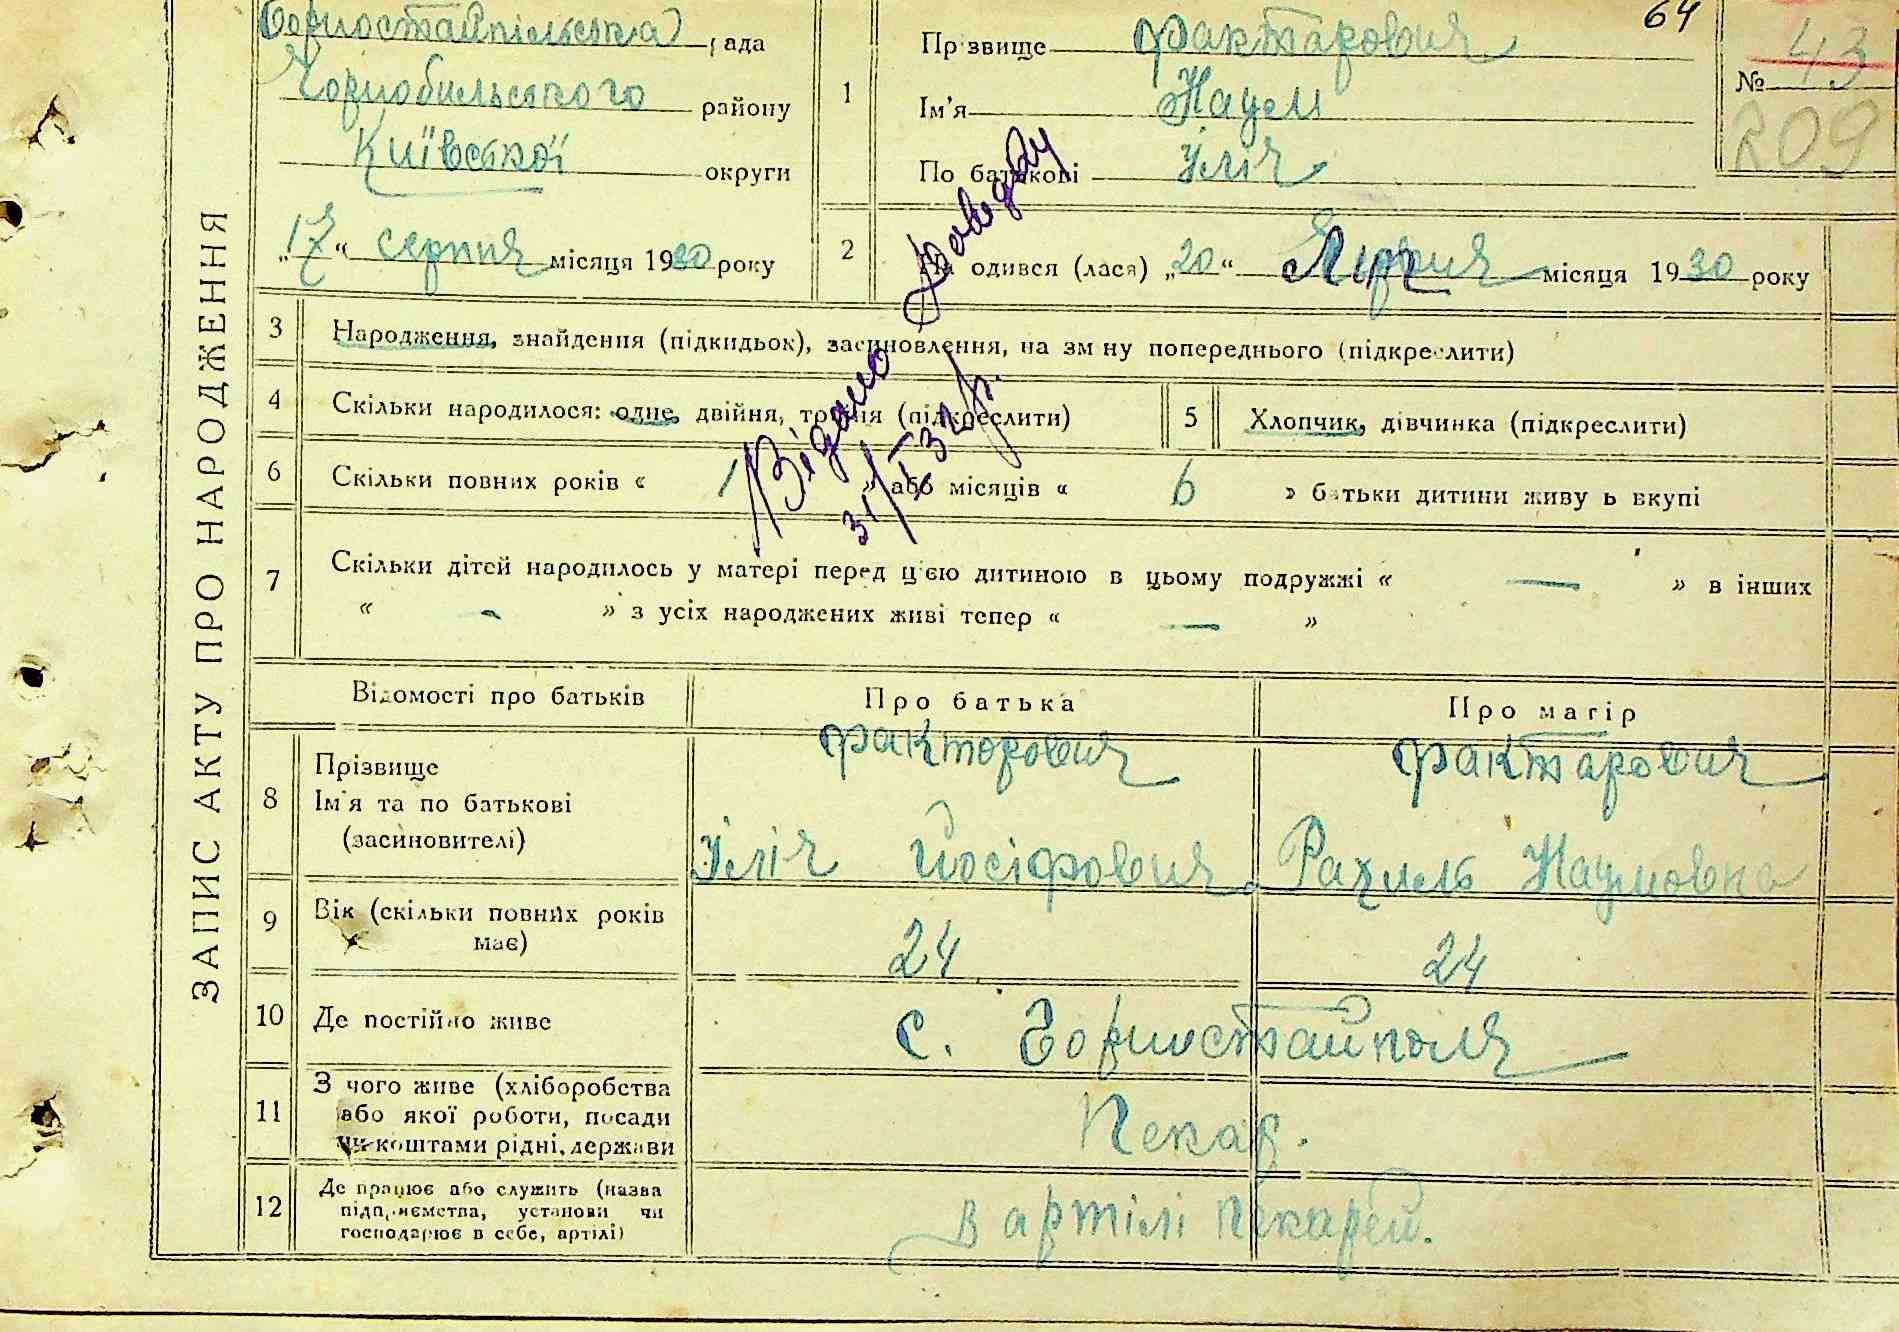 64
Горностайпільська рада
Чорнобильського району
Київської округи
„17“ серпня місяця 1930 року
ЗАПИС АКТУ ПРО НАРОДЖЕННЯ
1
Прізвище Фактарович
Ім'я Наум
По батькові Іліч
№ 43
209
2
Народився (лася) „20“ місяця 1930 року
Видано довідку
3 Народження, знайдення (підкидьок), засиновлення, на зміну попереднього (підкреслити)
4 Скільки народилося: одне, двійня, тройня (підкреслити)
5 Хлопчик, дівчинка (підкреслити)
6 Скільки повних років « 1 » або місяців « 6 » батьки дитини живуть вкупі
7 Скільки дітей народилось у матері перед цією дитиною в цьому подружжі « — » в інших
« - » з усіх народжених живі тепер « — »
Відомості про батьків
Про батька
Про матір
8
Прізвище
Ім'я та по батькові
(засиновителі)
Факторович
Іліч Йосіфович
Фактарович
Рахиль Наумовна
9 Вік (скільки повних років
має)
24
24
10 Де постійно живе
с. Горностайполя
11 З чого живе (хліборобства
або якої роботи, посади
чи коштами рідні, держави
Пекар.
12 Де працює або служить (назва
підприємства, установи чи
господарює в себе, артілі)
В артілі Пекарей.